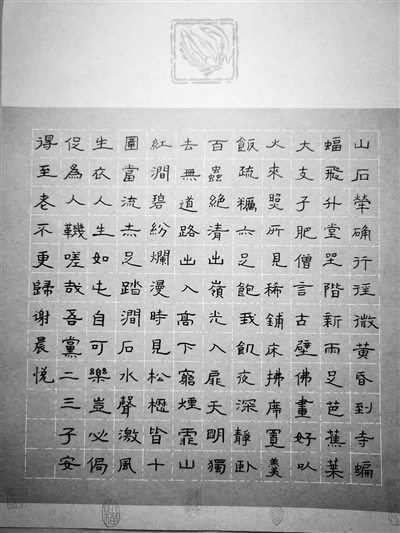 山石犖确行徑微黃昏到寺蝙
蝠飛升堂坐階新雨足芭蕉葉
大支子肥僧言古壁佛畫好以
火來照所見稀鋪床拂席置羹
飯疏糲亦足飽我飢夜深靜臥
百蟲絕清出嶺光入扉天明獨
去無道路出入高下窮煙霏山
紅澗碧紛爛漫時見松櫪皆十
圍當流赤足踏澗石水聲激風
生衣人生如此自可樂豈必侷
促為人鞿嗟哉吾黨二三子安
得至老不更歸谢晨悅